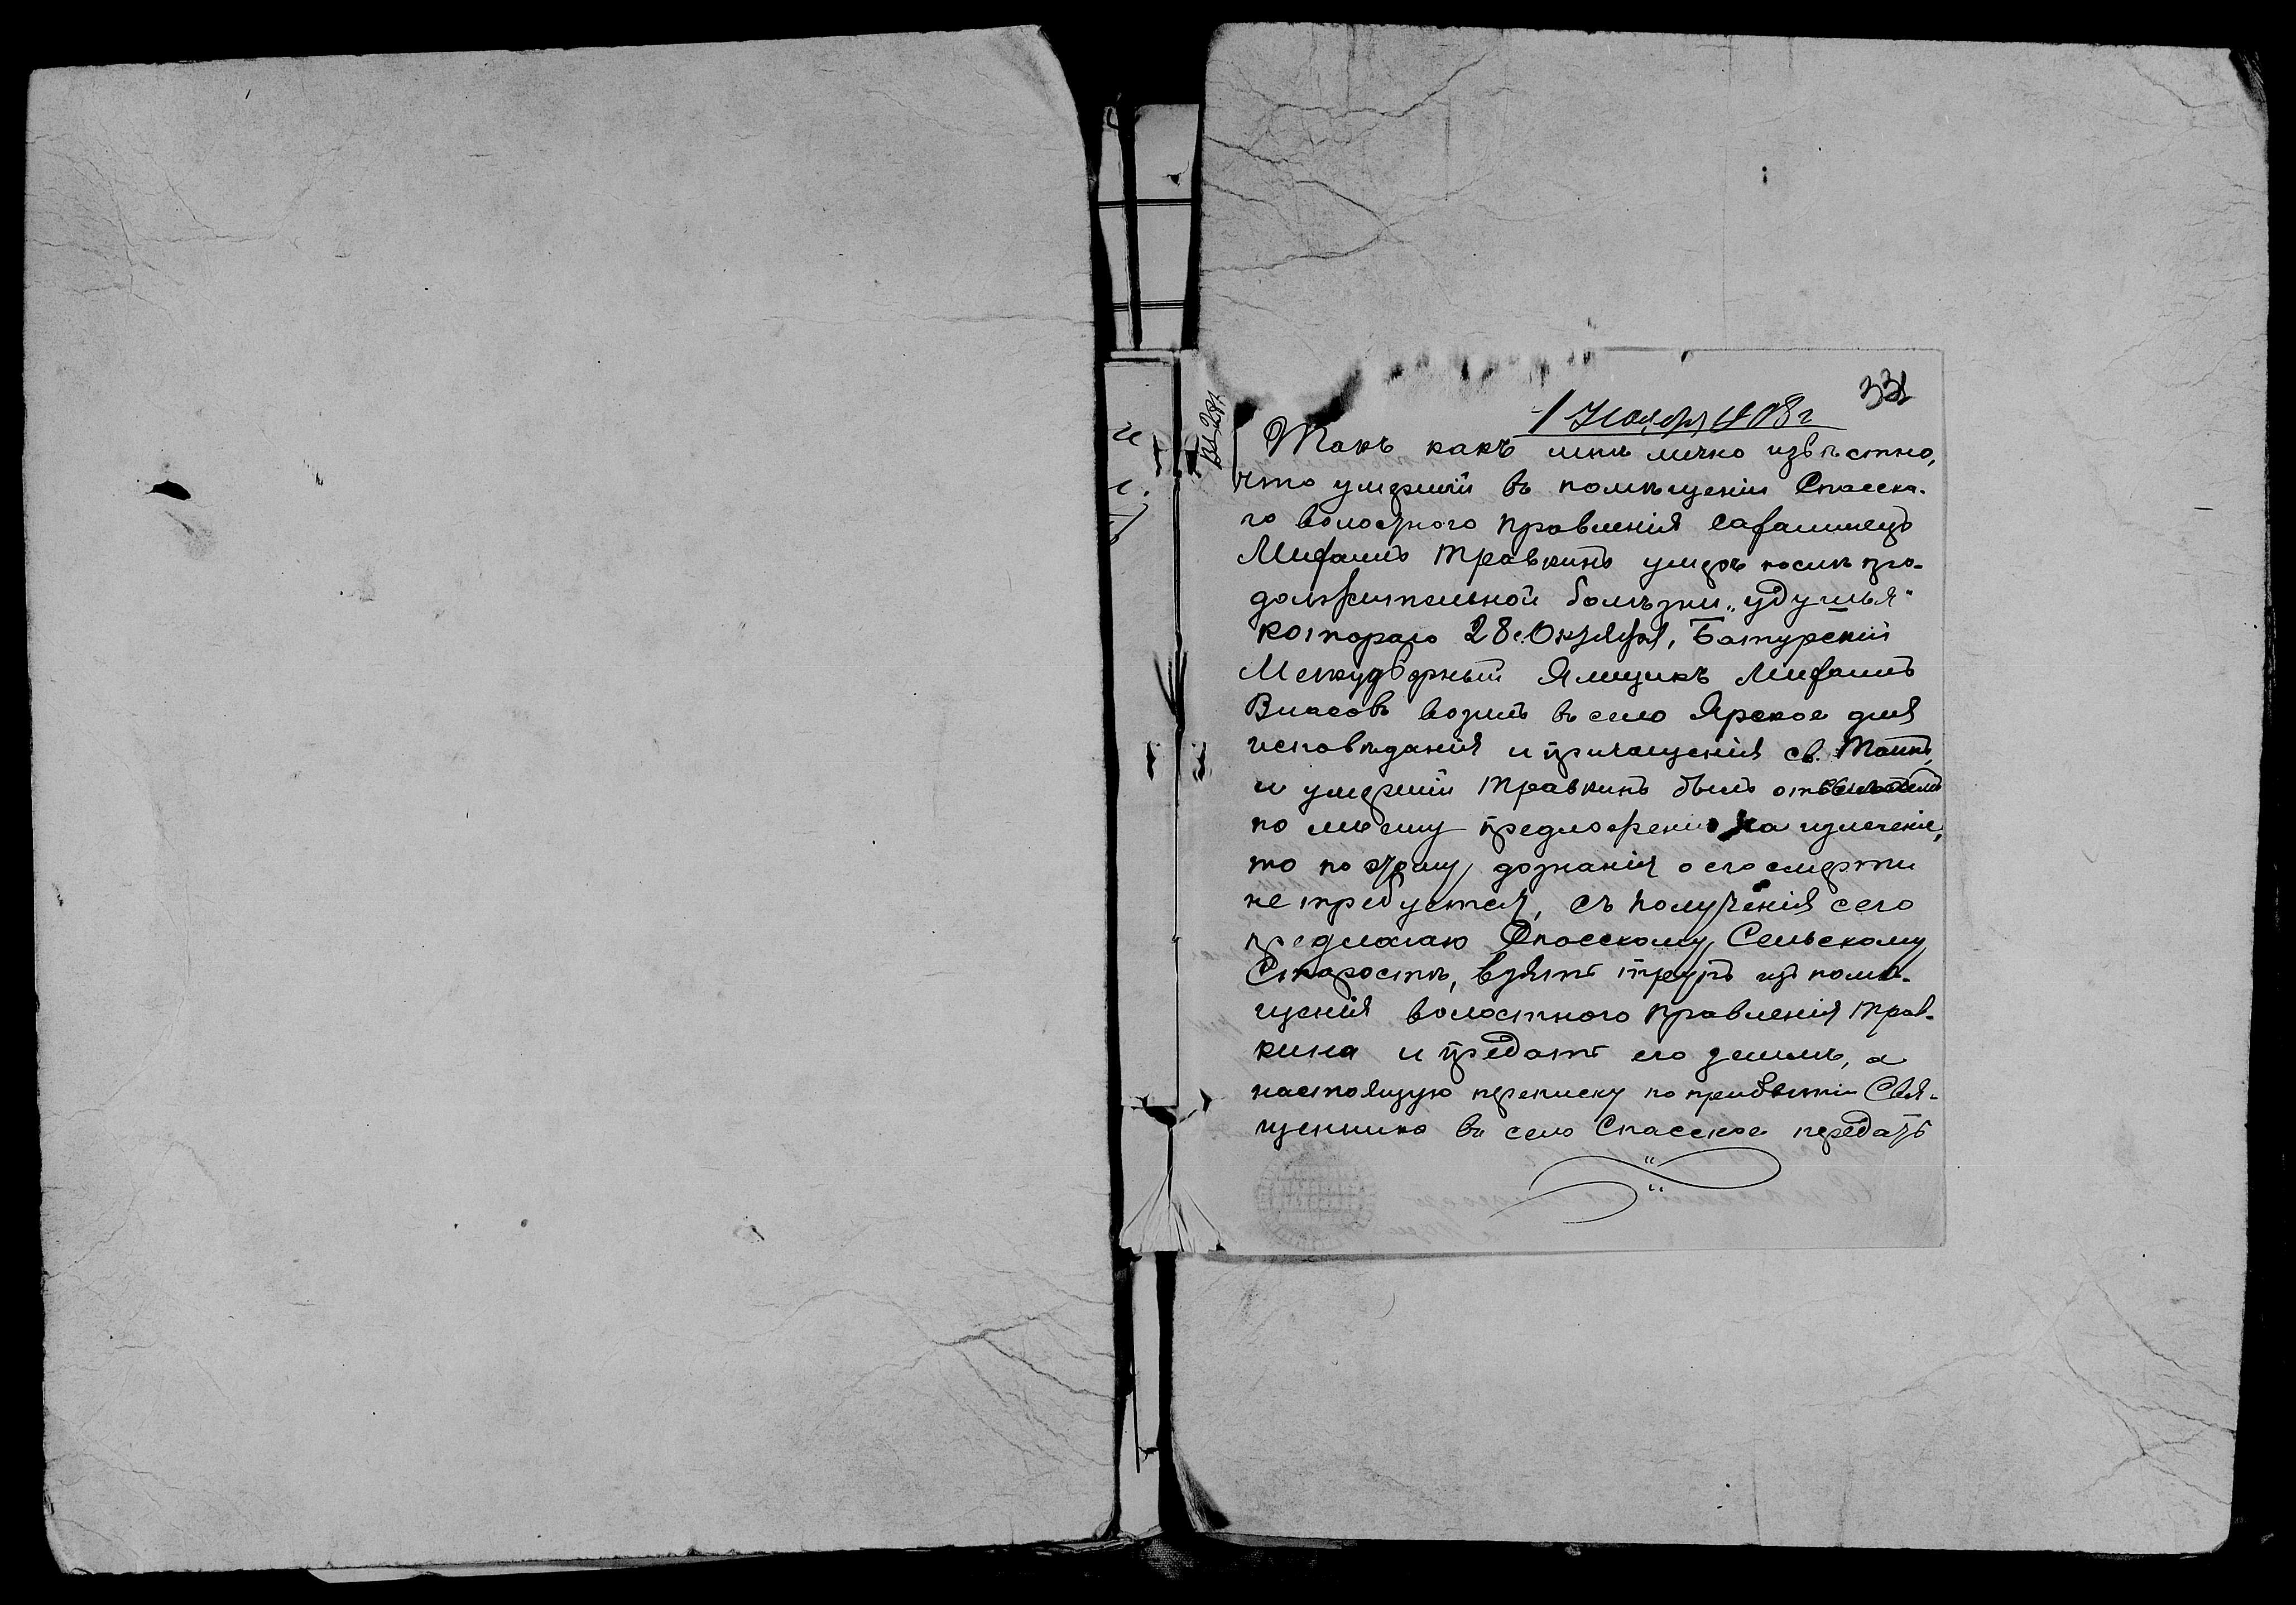 331
1 Ноября 1908 г
Такъ какъ мнѣ лично извѣстно,
что умершiй въ помѣщенiи Спасска-
го волостного правленiя сахалинецъ
Михаилъ Травкинъ умеръ послѣ про-
должительной болѣзни „удушья"
котораго 28 Октября, Батурскiй
Междудворный Ямщикъ Михаилъ
Власовъ возилъ въ село Ярское для
исповѣданiя и причащенiя св. Таинъ,
и умершiй Травкинъ былъ
по моему предложенiю на излеченiе,
то по этому дознанiя о его смерти
не требуется, съ полученiя сего
предлагаю Спасскому Сельскому
Старостѣ, взять трупъ изъ помѣ-
щенiя волостного правленiя Трав-
кина и предать его землѣ, а
настоящую переписку по прибытiи Свя-
щенника въ село Спасское передать